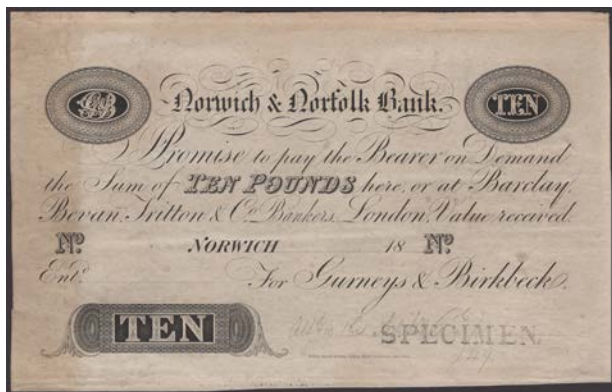 GB Norwich & Norfolk Bank. TEN
I Promise to pay the Bearer on Demand
the Sum of TEN POUNDS here, or at Barclay,
Bevan, Tritton & Co. Bankers, London, Value received.
No. NORWICH 18 No.
Entd. For Gurneys & Birkbeck.
TEN SPECIMEN